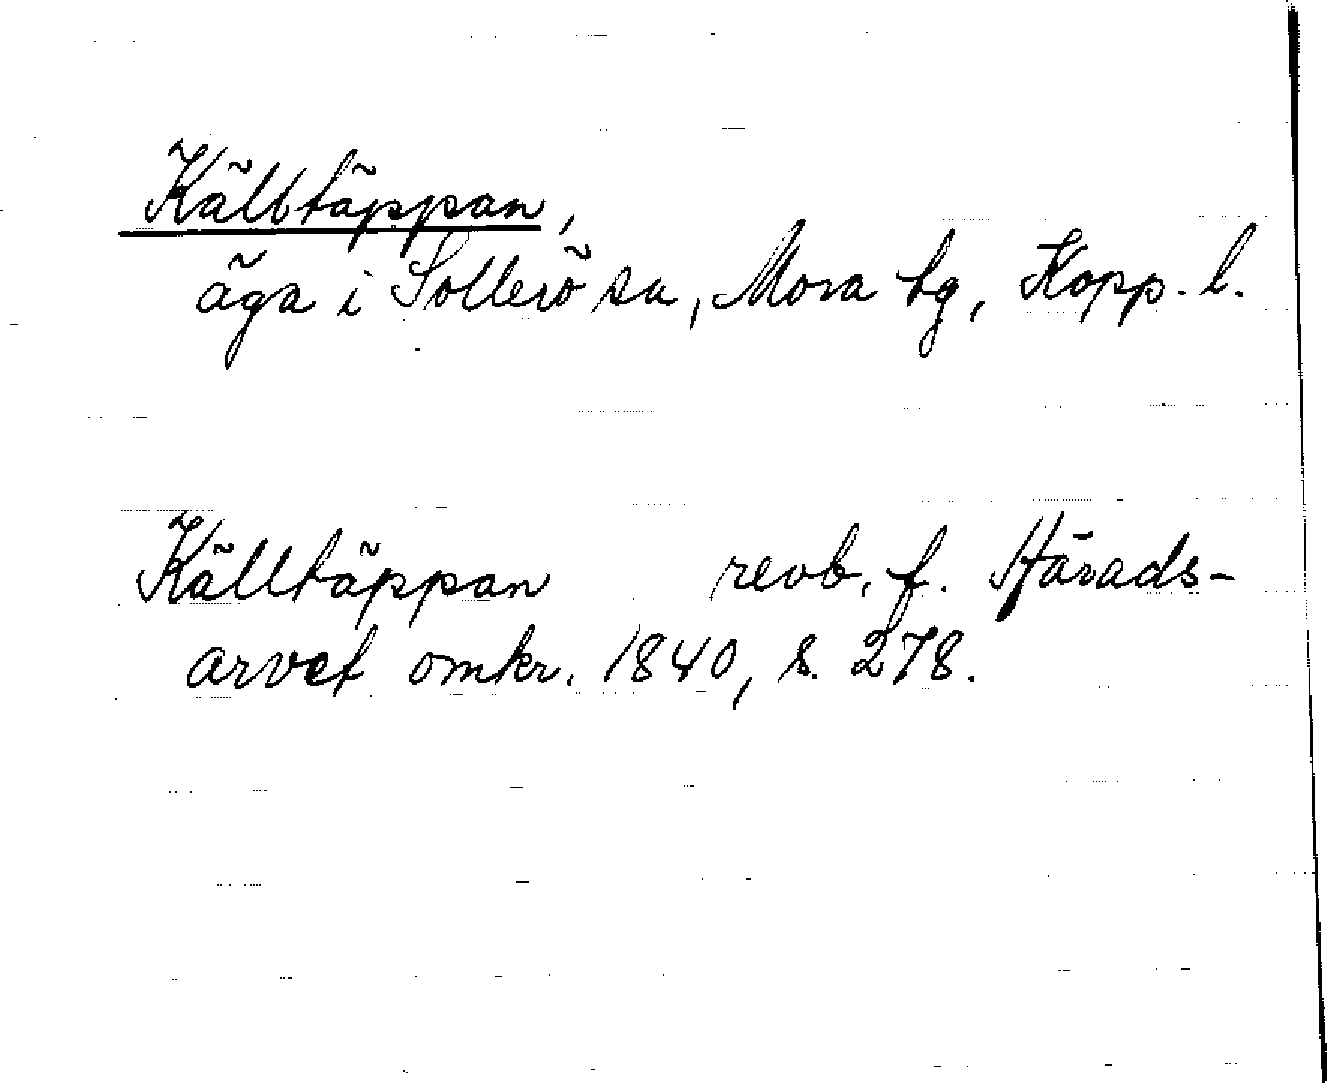 Källtäppan,
äga i Sollerö sn, Mora tg, Kopp. l.
Källtäppan revb. f. Härads-
arvet omkr. 1840, s. 278.